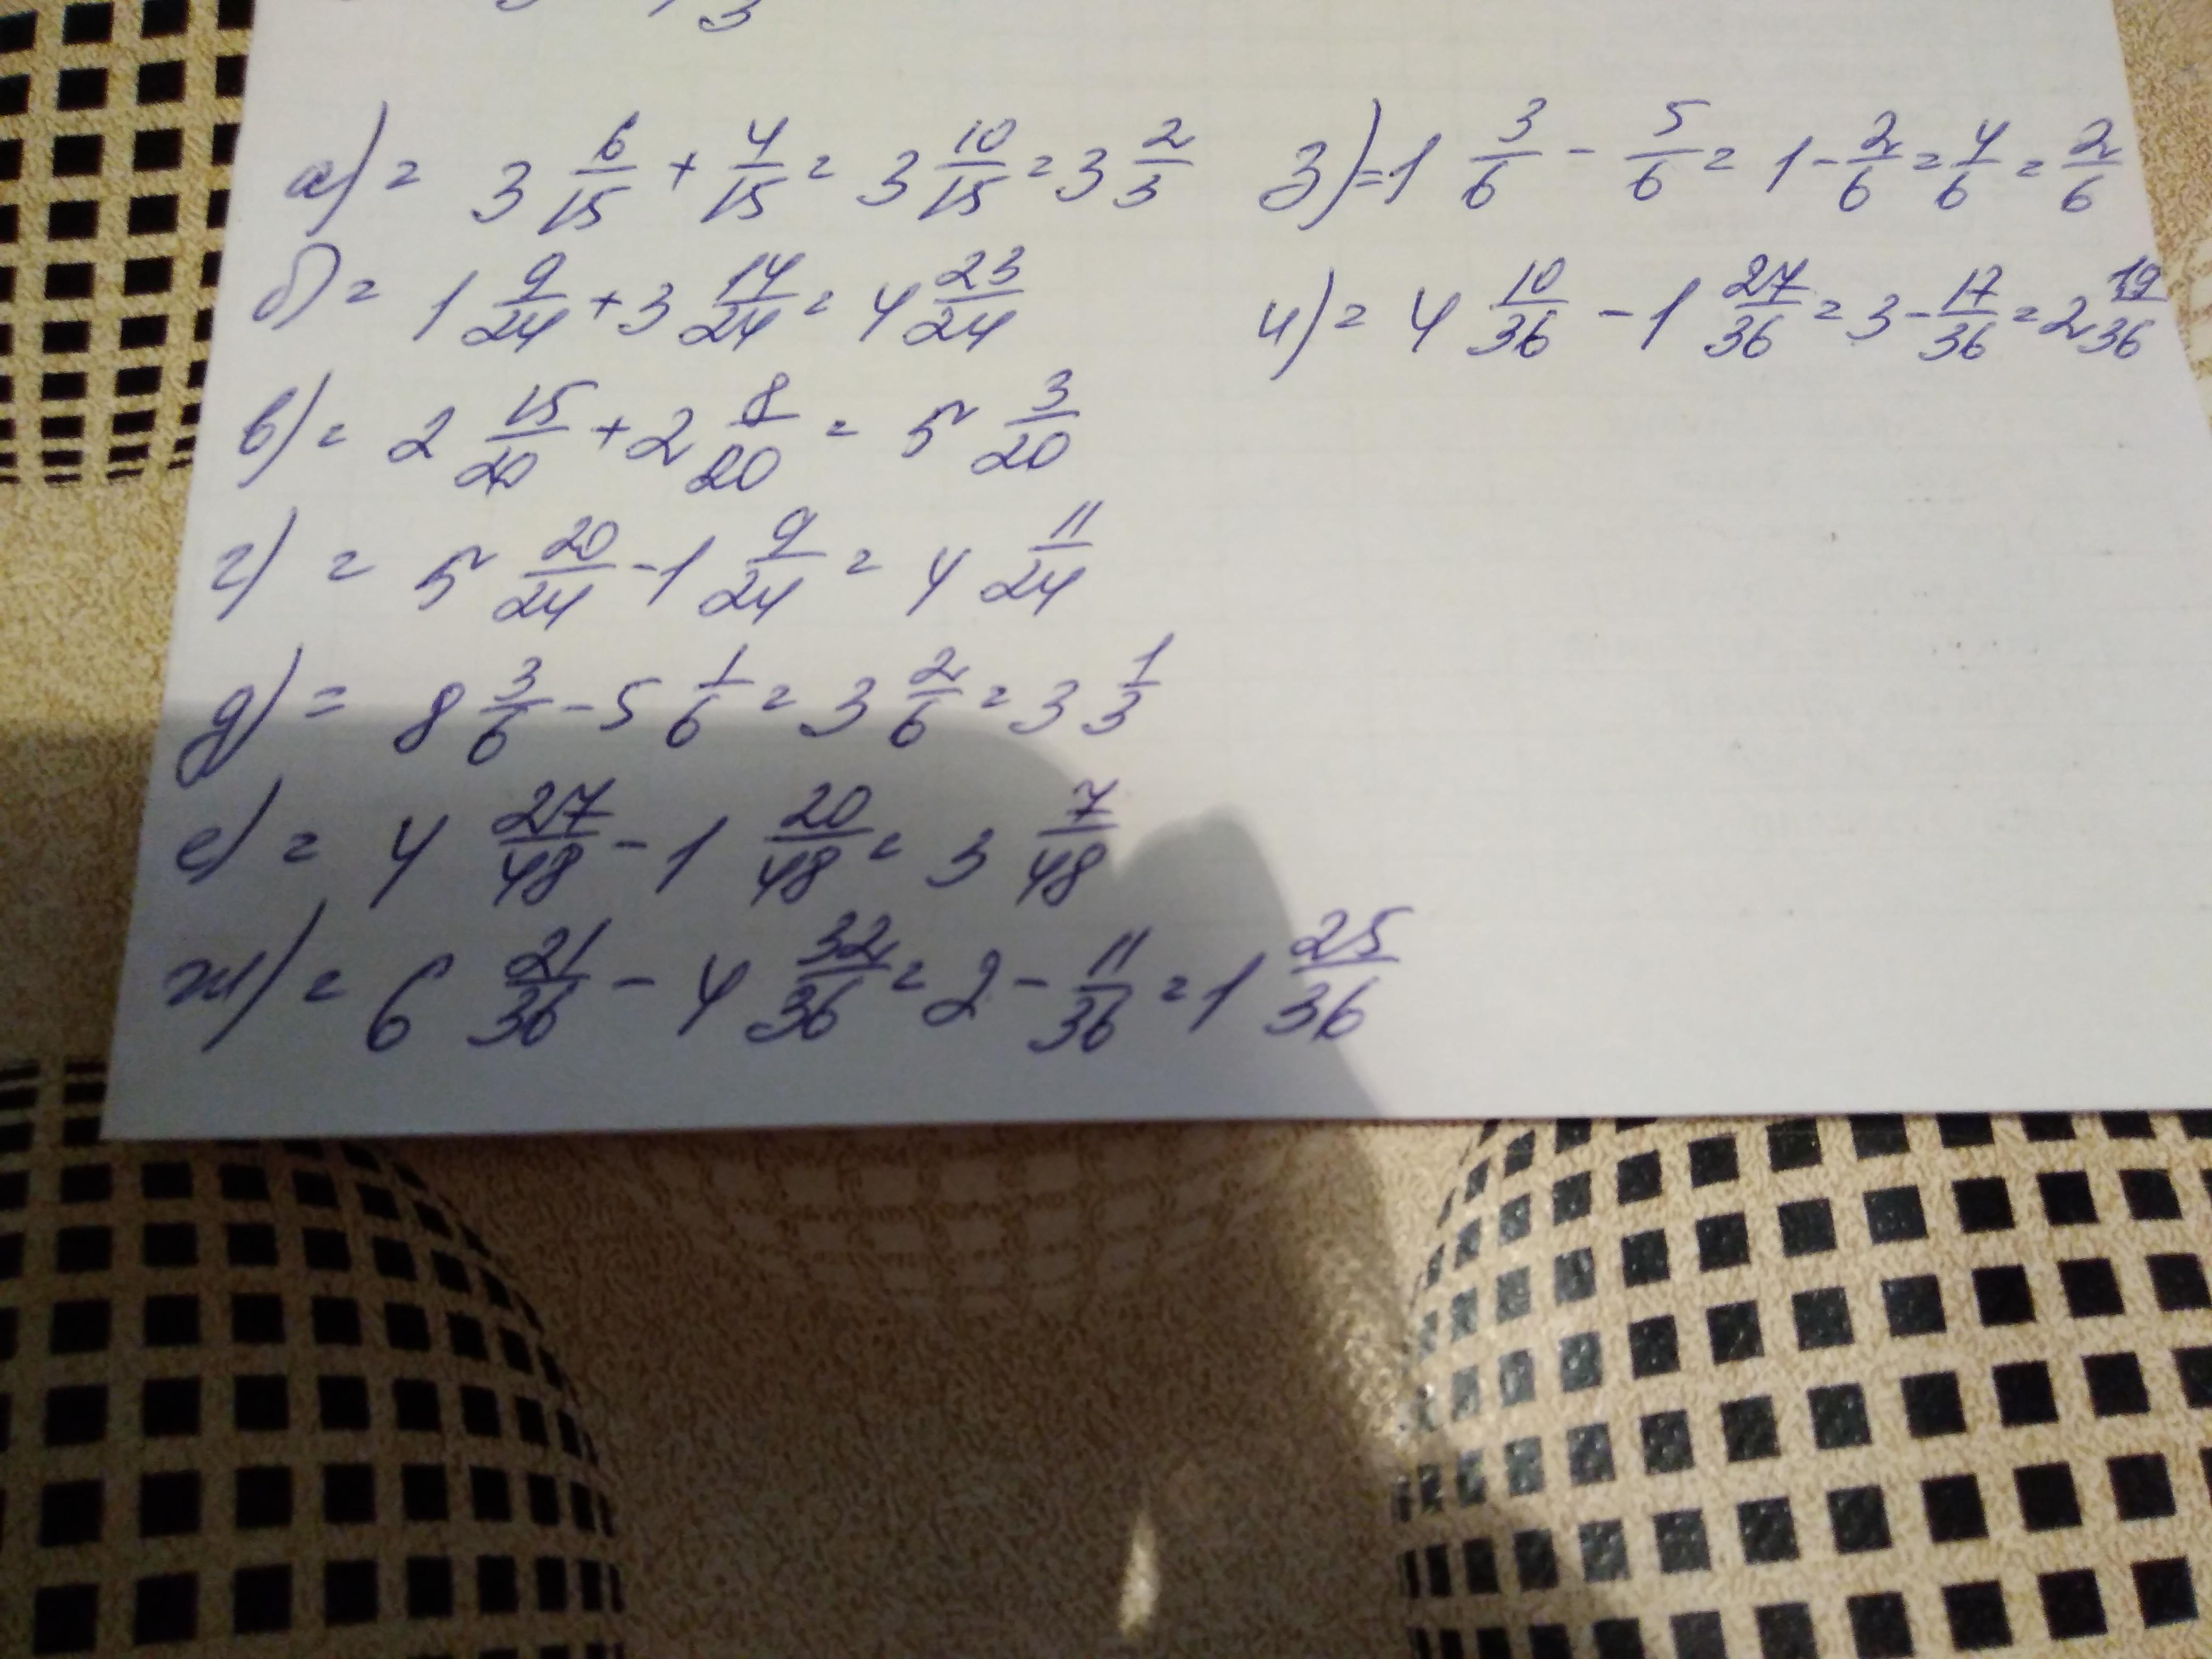 3
а) = 3 6/15 + 4/15 = 3 10/15 = 3 2/3
б) = 1 9/24 + 3 14/24 = 4 23/24
в) = 2 15/20 + 2 8/20 = 5 3/20
г) = 5 20/24 - 1 9/24 = 4 11/24
д) = 8 3/6 - 5 1/6 = 3 2/6 = 3 1/3
е) = 4 27/48 - 1 20/48 = 3 7/48
ж) = 6 21/36 - 4 32/36 = 2 - 11/36 = 1 25/36
з) = 1 3/6 - 5/6 = 1 - 2/6 = 4/6 = 2/6
и) = 4 10/36 - 1 27/36 = 3 - 17/36 = 2 19/36